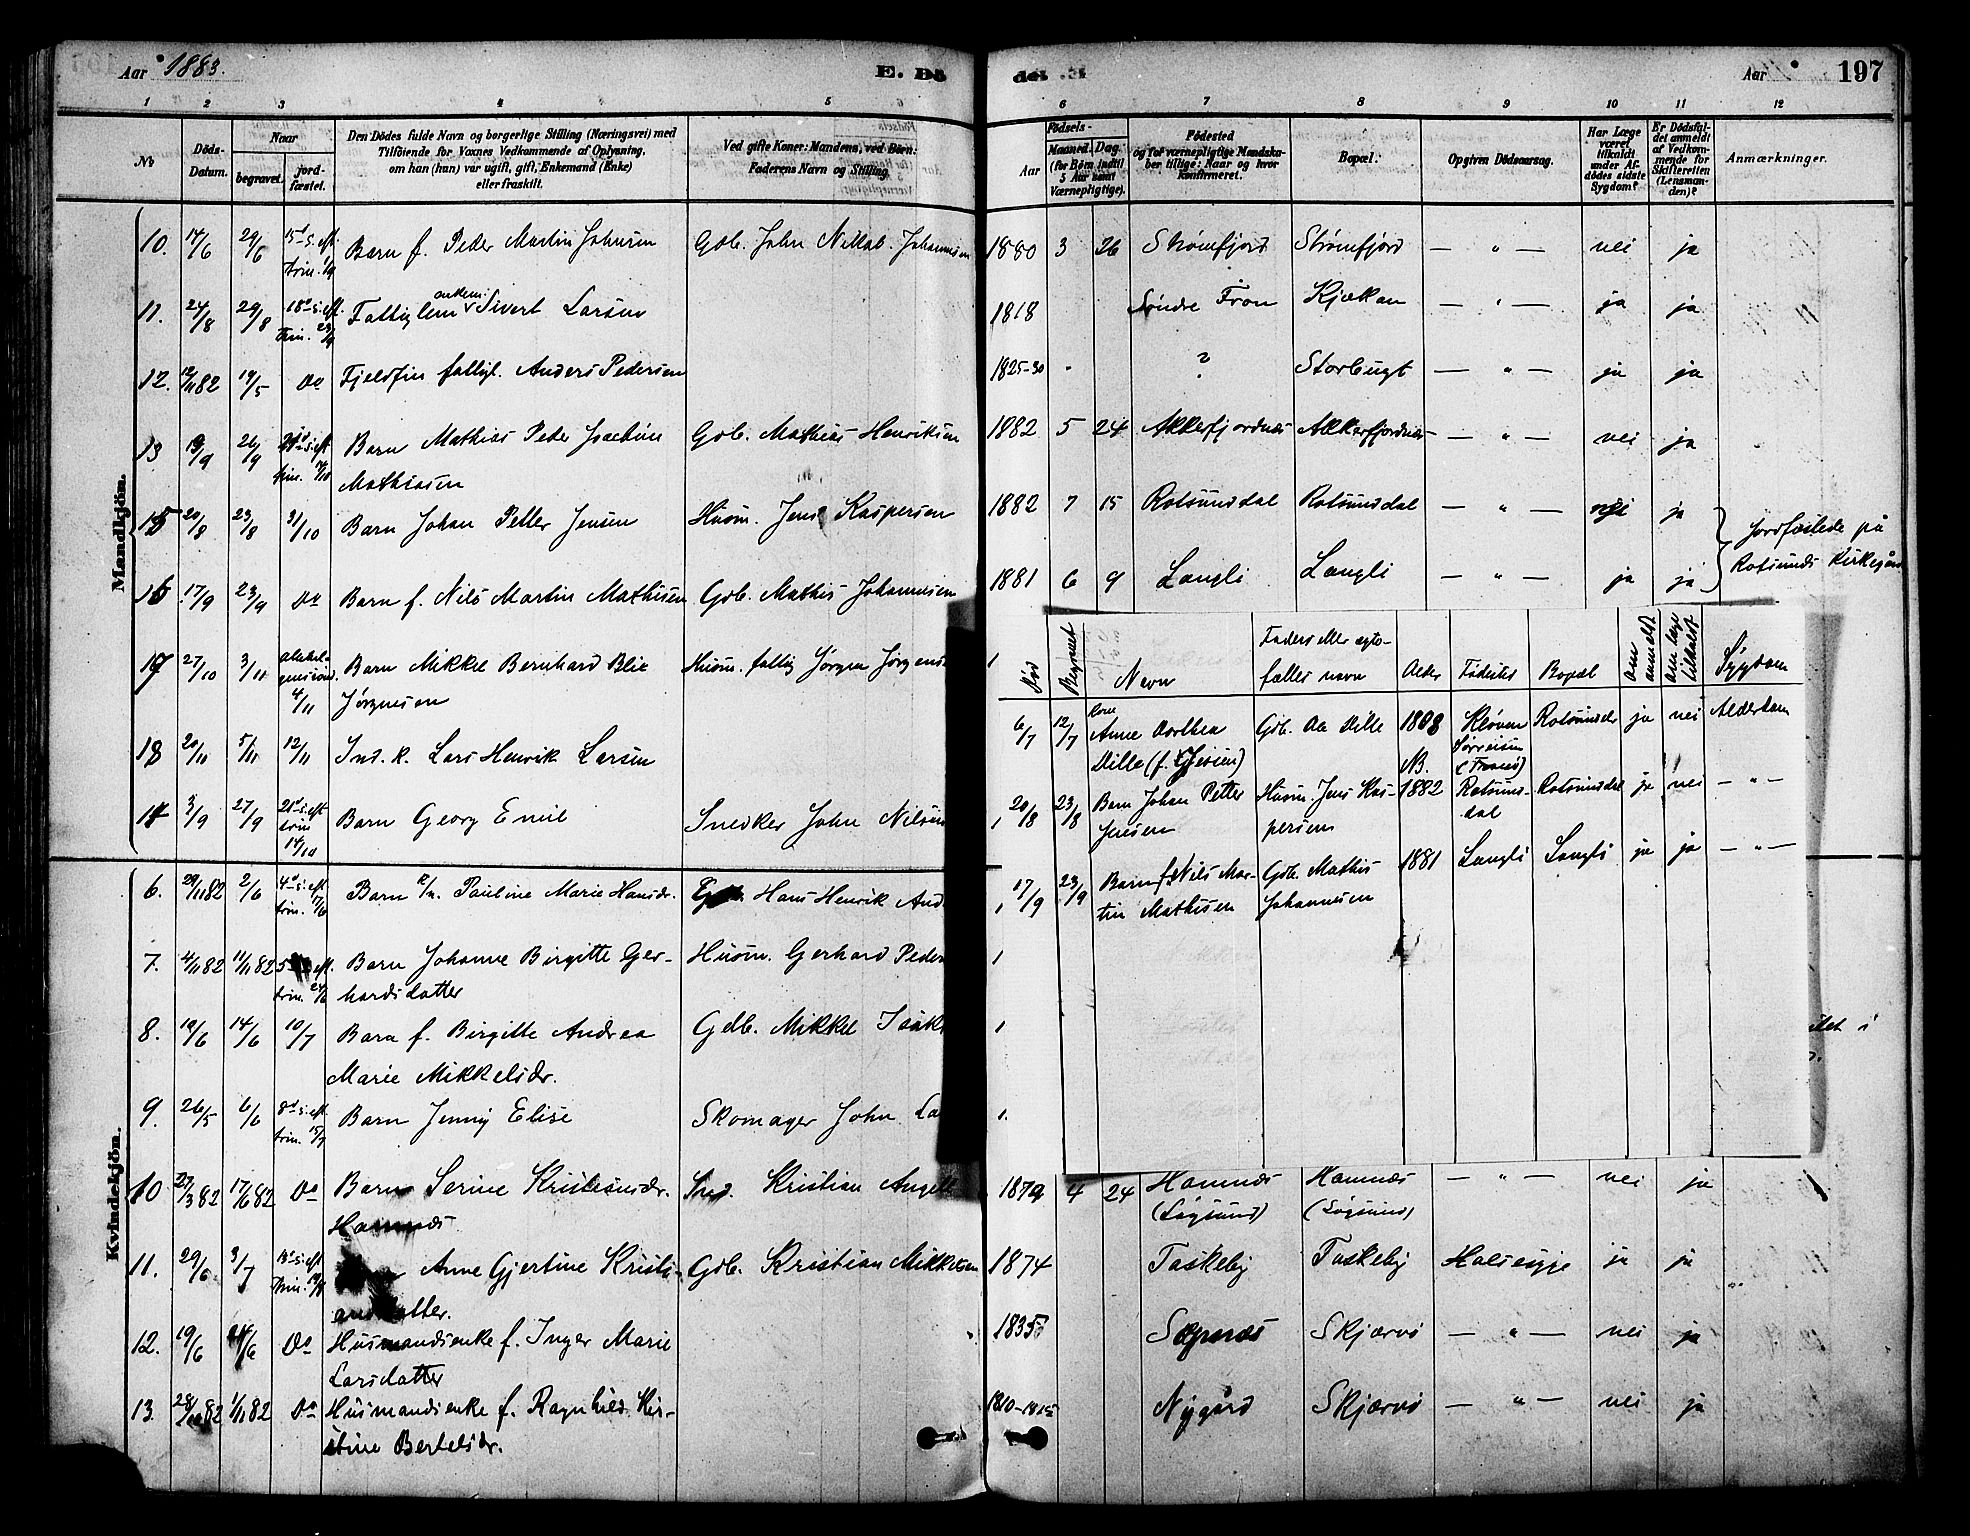 Aar 1883. E. Dö
1 2 3 4 5
No Döds-Datum. Naar begravet. jordfæstet. Den Dödes fulde Navn og borgerlige Stilling (Næringsvei) med Tilföiende for Voxnes Vedkommende af Oplysning, om han (hun) var ugift, gift, Enkemand (Enke) eller fraskilt. Ved gifte Koner: Mandens, ved Börn: Faderens Navn og Stilling.
Mandkjön.
10. 14/6 29/6 15de S. eft. trin. Barn f. Peder Martin Johnsen Gdb. John Niklas Johannesen
11. 24/8 29/8 18de S. eft. Trin. 23/9 Fattiglem enkem. Sivert Larsen
12. 12/11 82 19/5 Do Fjeldfin fattigl. Anders Pedersen
13 19/9 26/9 S. eft. trin. Barn Mathias Peder Joachim Gdb. Mathias Henriksen
Mathiasen
15 20/8 23/8 31/10 Barn Johan Petter Jensen Husm. Jens Kaspersen
16. 17/9 23/9 Do Barn f. Nils Martin Mathisen Gdb. Mathis Johannesen
17 27/10 3/11 4/11 Barn Mikkel Bernhard Blix Husm. fattig Jørgen Jørgens
Jørgensen
18 20/11 5/11 12/11 Ind. k. Lars Henrik Larsen
14 3/9 27/9 21de S. eft. trin 14/10 Barn Georg Emil Snedker John Nilsen
Kvindekjön.
6. 29/11 82 2/6 4de S. eft. trin. 17/6 Barn Pauline Marie Hansdr. Hans Henrik And
7. 4/11 82 11/11 82 5 eft. trin. 24/6 Barn Johanne Birgitte Ger- Husm. Gerhard Peder
hardsdatter
8. 10/6 14/6 10/7 Barn f. Birgitte Andrea Gdb. Mikkel Isak
Marie Mikkelsdr.
9. 26/5 6/6 8de S. eft. trin. 15/7 Barn Jenny Elise Skomager John La
10 27/3 82 17/6 82 Do Barn Serine Kristensdr. Ind. Kristian Angell
Hamnæs
11. 29/6 3/7 13de S. eft. Trin. 19/8 Anne Gjertine Kristi- Gdb. Kristian Mikkelsen
andatter.
12. 19/6 24/6 Do Husmandsenke f. Inger Marie
Larsdatter
13. 28/10 82 1/11 82 Do Husmandsenke f. Ragnhild Kir-
stine Bertelsdr.
de. Aar 197
6 7 8 9 10 11 12
Födsels- Aar Maaned. Dag. (for Börn indtil 5 Aar samt Værnepligtige). Födested og for værnepligtige Mandskaber tillige: Naar og hvor konfirmeret. Bopæl. Opgiven Dödsaarsag. Har Læge været tilkaldt under Afdödes sidste Sygdom? Er Dödsfaldet anmeldt af Vedkommende for Skifteretten (Lensmanden)? Anmærkninger.
1880 3 26 Strømfjord Strømfjord — " — nei ja
1818 Søndre Fron Kjækan — " — ja ja
1825-30 " ? Storbugt — " — ja ja
1882 5 24 Akkerfjordnæs Akkerfjordnæs — " — nei ja
1882 7 15 Rotsunddal Rotsunddal — " — nei ja Jordfæstede på
1881 6 9 Langli Langli — " — ja ja Rotsunds Kirkegård
Død Begravet Navn Faders eller ægtefælles navn Alder Fødested Bopæl om anmeldt om læge tilkaldt Sygdom
6/7 12/7 Kone Anne Dorthea Gdb. Ole Dille 1808 Kløven Rotsundet ja nei Alderdom
Dille (f. NB. Sørreisen (Tranø)
20/8 23/8 Barn Johan Petter Husm. Jens Kas- 1882 Rotsund- Rotsundal ja nei — " —
Jensen persen dal
17/9 23/9 Barn f. Nils Mar- Gdb. Mathis 1881 Langli Langli ja ja — " —
tin Mathisen Johannesen
1879 4 24 Hamnæs Hamnæs — " — nei ja
(Løgsund) (Løgsund)
1874 Taskeby Taskeby Halssyge ja ja
1835 Skjærvø — " — nei ja
1810-1815 Nygård Skjærvø — " — nei ja